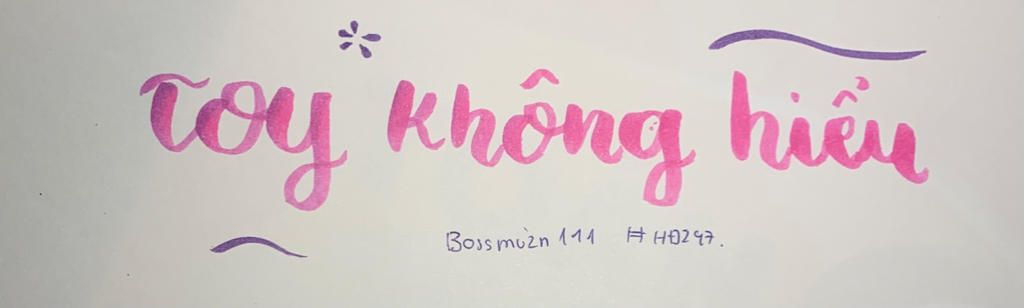 Toy không hiểu
Bossmuzn 111 #HĐ247.